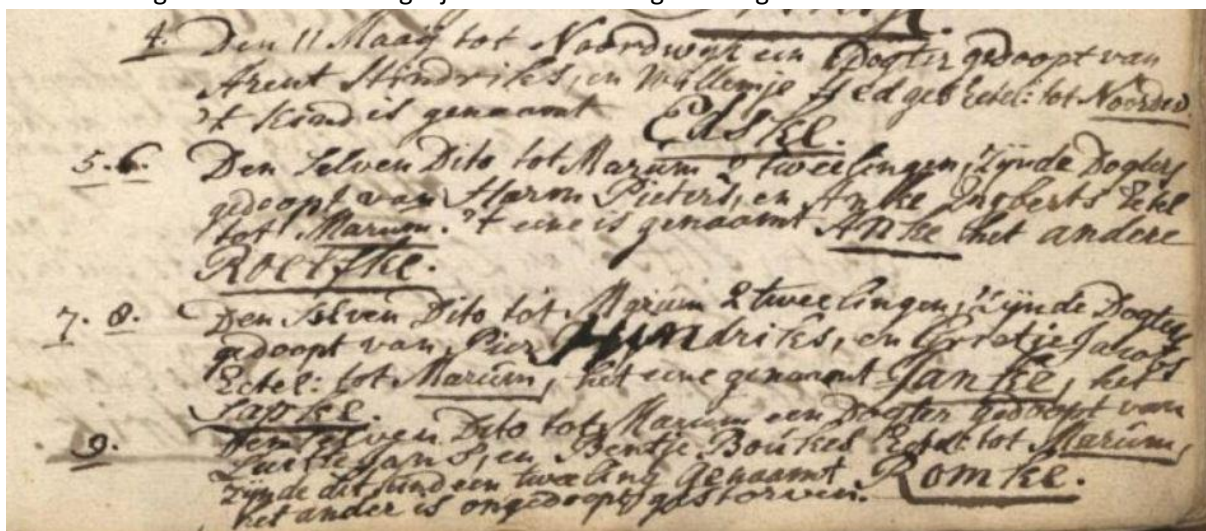 4. Den 11 Maaij tot Noordwijk een Dogter gedoopt van
Arent Hindriks, en Willemje
't Kind is genaamt Edske.
5. 6. Den Selven Dito tot Marum 2 tweelingen, Zijnde Dogters
gedoopt van Harm Pieters, en Anke Engberts Echtel
tot Marum. 't eene is genaamt Anke het andere
Roelfke.
7. 8. Den Selven Dito tot Marum 2 tweelingen, Zijnde Dogters
gedoopt van Pier Hindriks, en Grietje Jacobs
Echtel: tot Marum, het eene genaamt Janke, het
9. Den Selven Dito tot Marum een Dogter gedoopt van
Jans, en Bentje Boukes Echtel: tot Marum,
Zijnde dit kind een tweeling genaamt Romke.
het ander is ongedoopt gestorven.